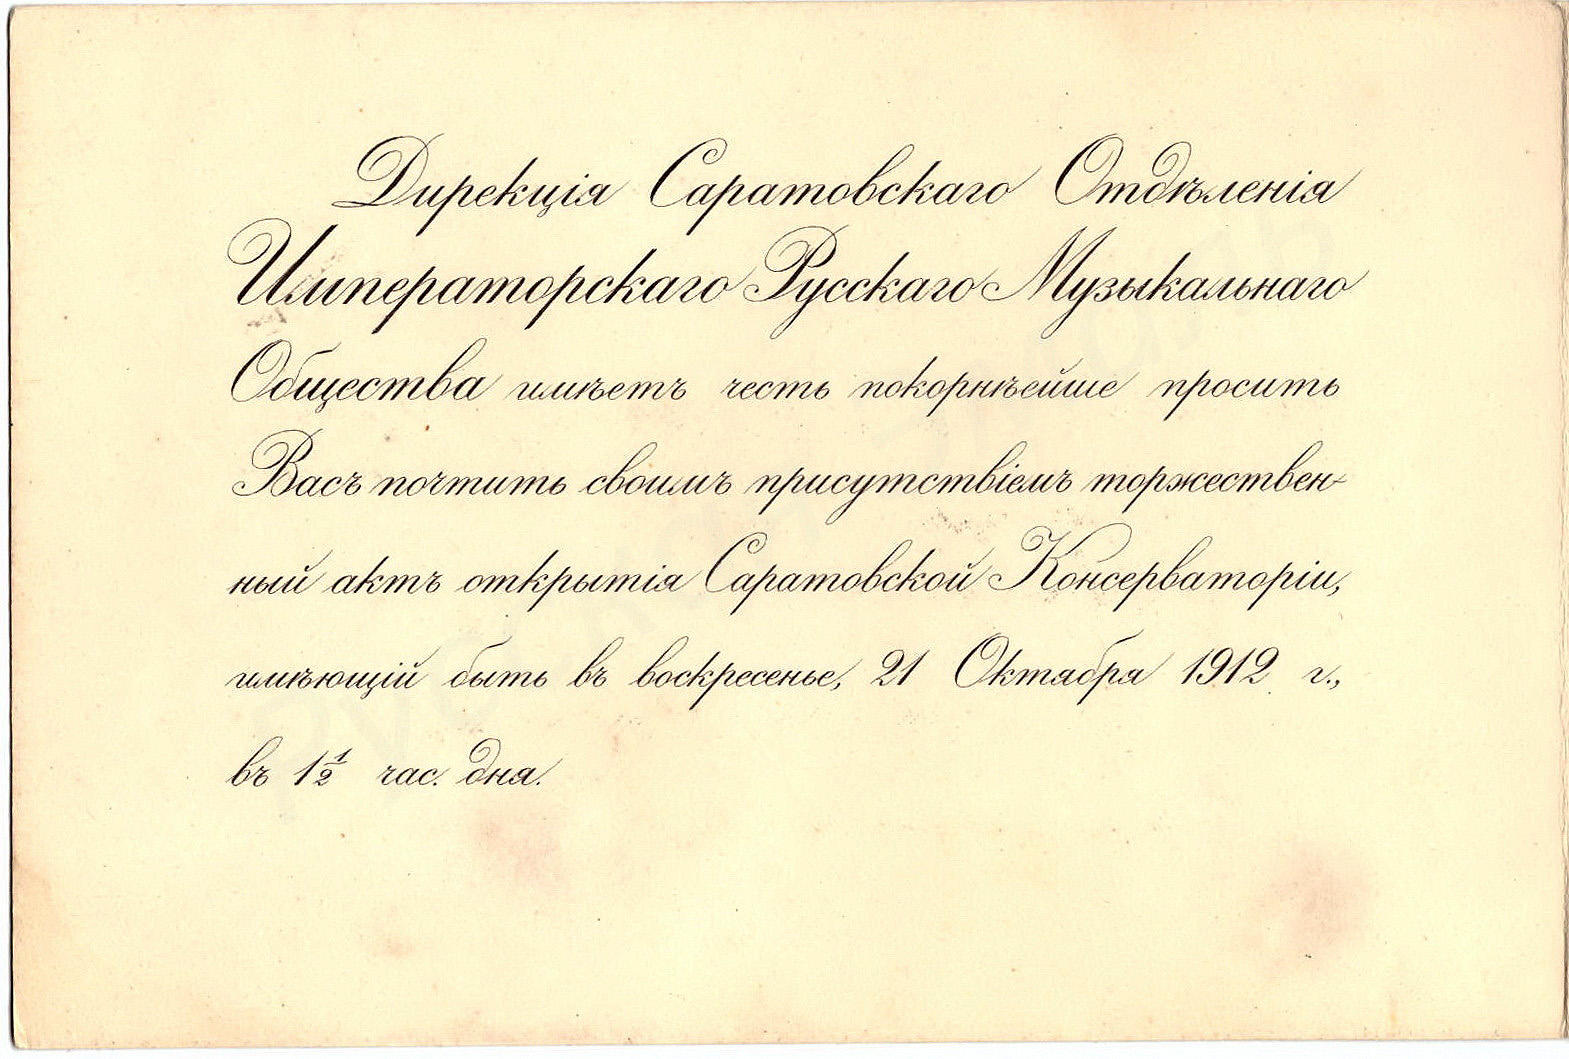 Дирекція Саратовскаго Отдѣленія
Императорскаго Русскаго Музыкальнаго
Общества имѣетъ честь покорнѣейше просить
Васъ почтить своимъ присутствіемъ торжествен-
ный актъ открытія Саратовской Консерваторіи,
имѣющій быть въ воскресенье, 21 Октября 1912 г.,
въ 1½ час. дня.